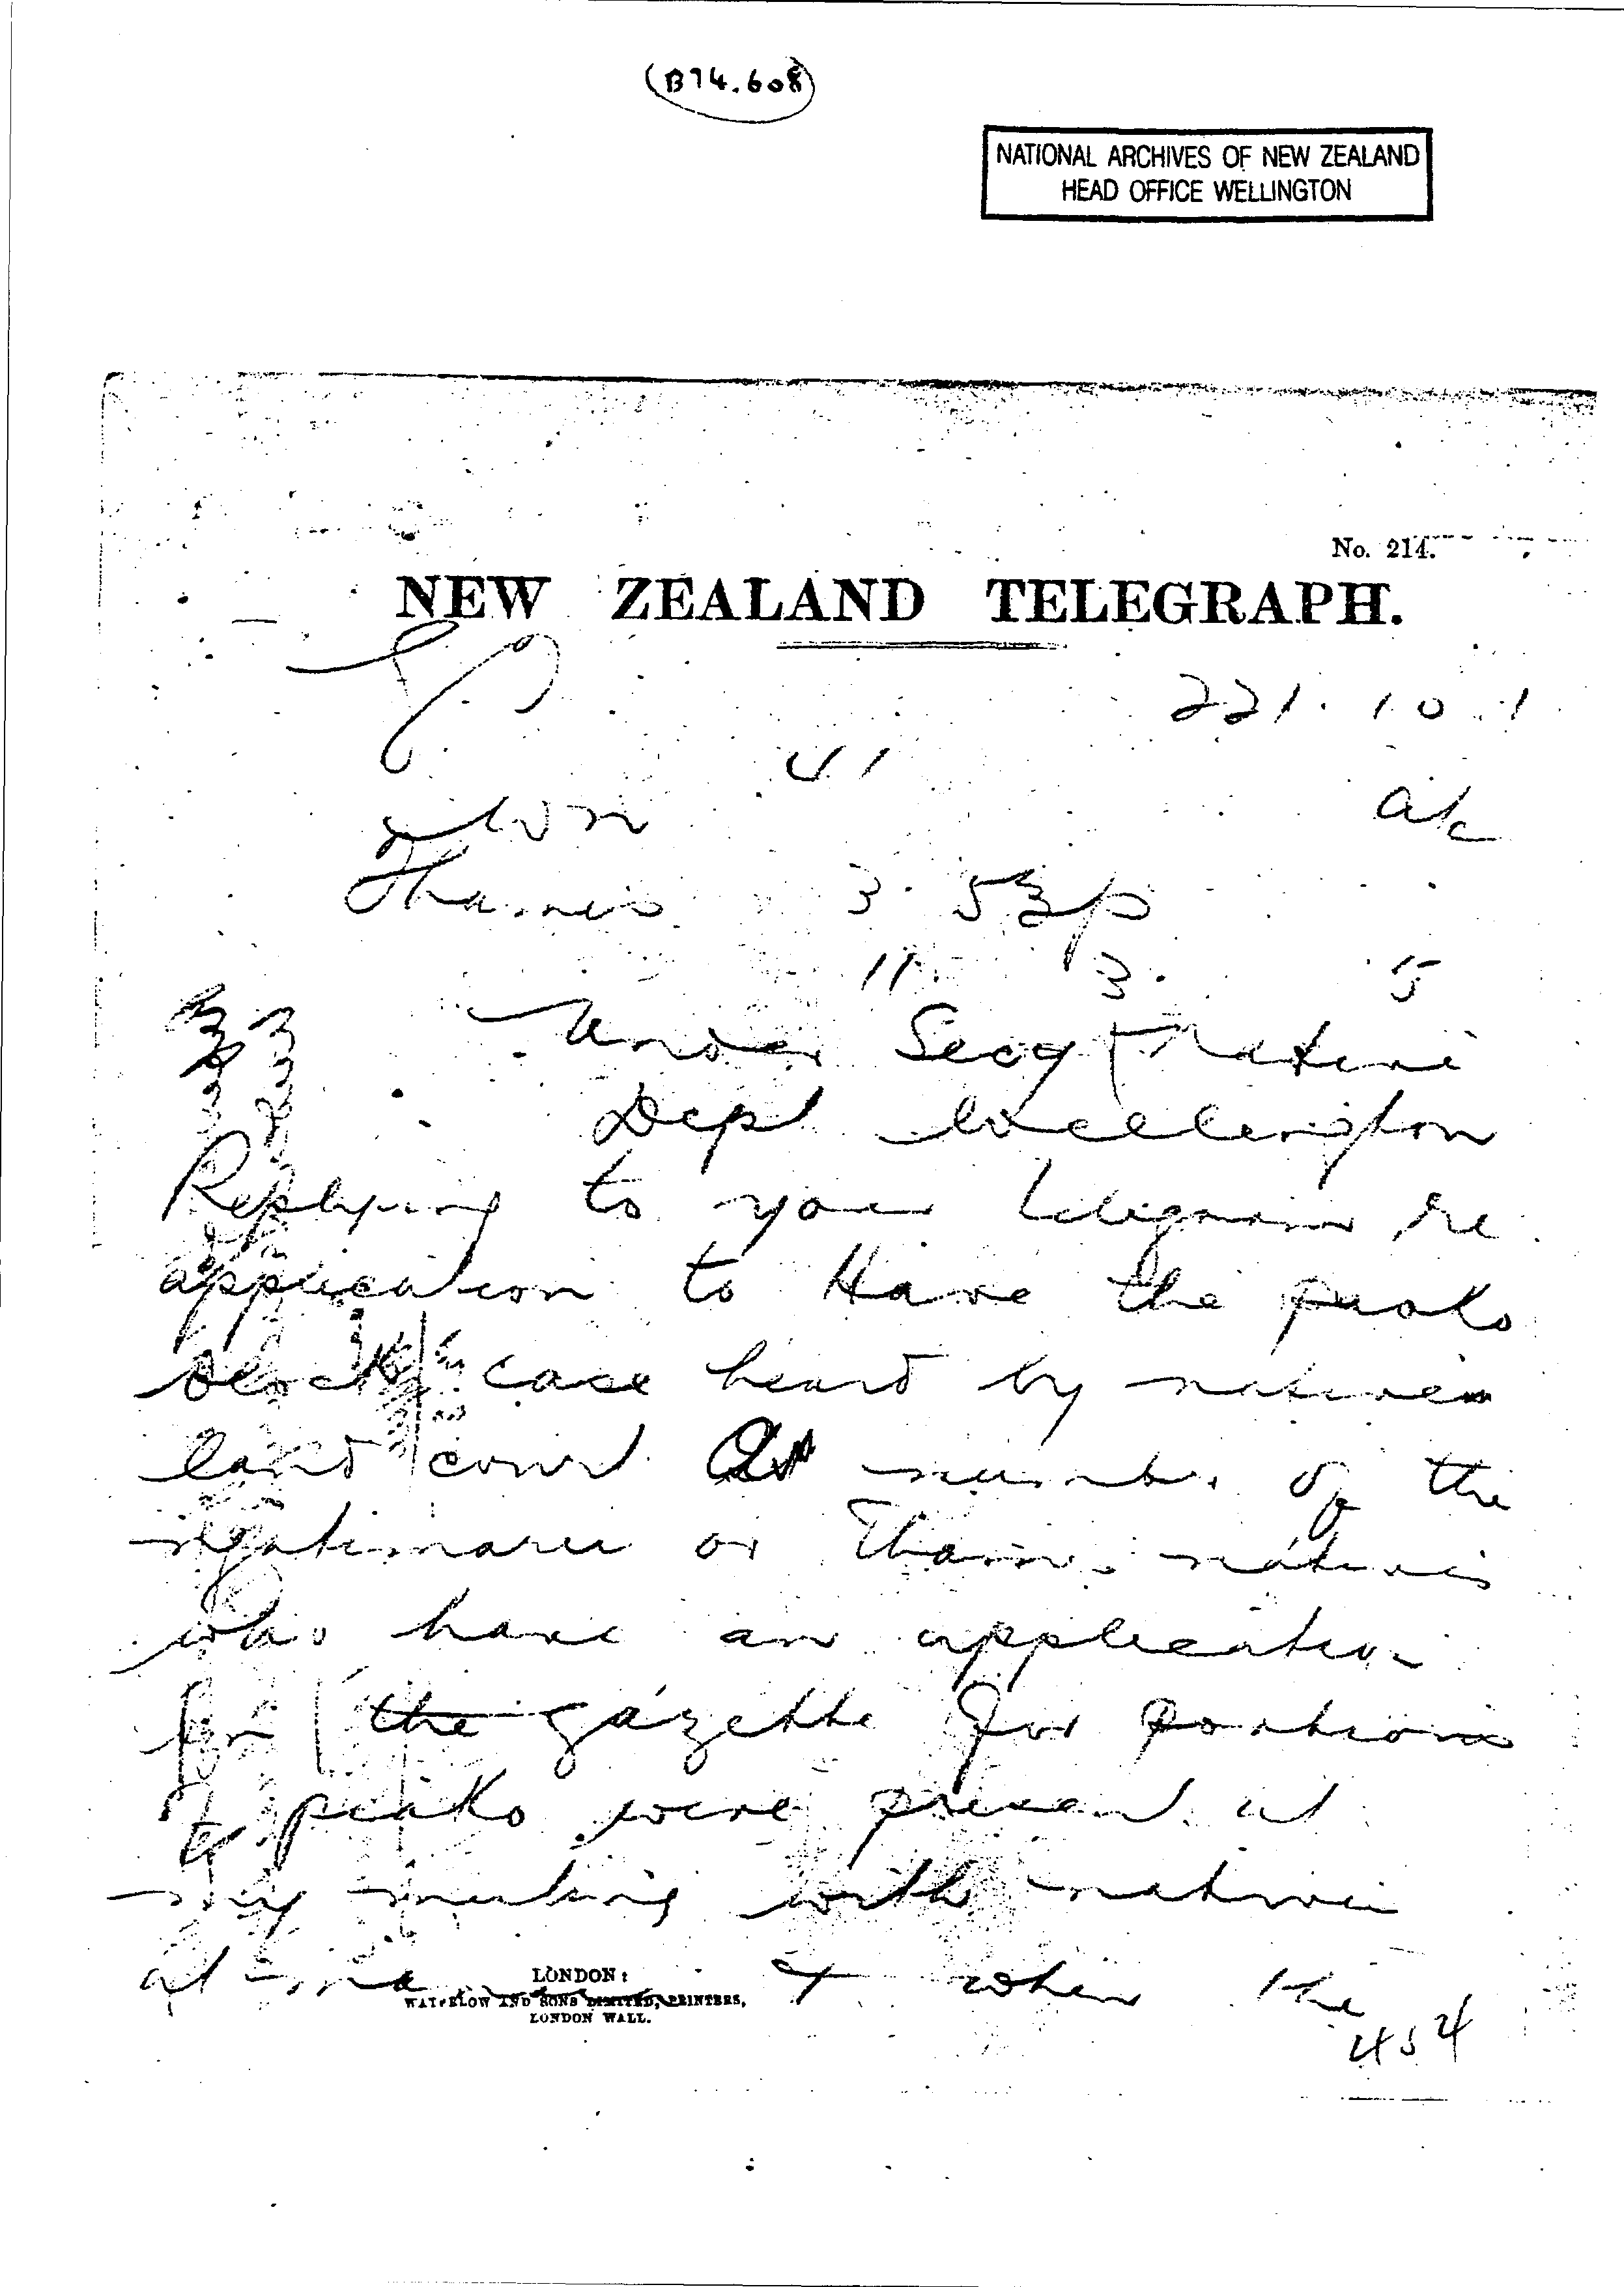 (B74.608)
NATIONAL ARCHIVES OF NEW ZEALAND
HEAD OFFICE WELLINGTON
No. 214.
NEW ZEALAND TELEGRAPH.
221. 10. 1
41
ak
Thames 3. 53p
11 3. 5
Under Secy Native
Dept Wellington
Replying to your telegram re
application to Have the piako
block case heard by natives
land court A number of the
ngatimaru or Thames natives
who have an application
in the gazette for portions
piako were present at
my meeting with natives
at & when the
LONDON:
WATERLOW AND SONS LIMITED, PRINTERS,
LONDON WALL.
454